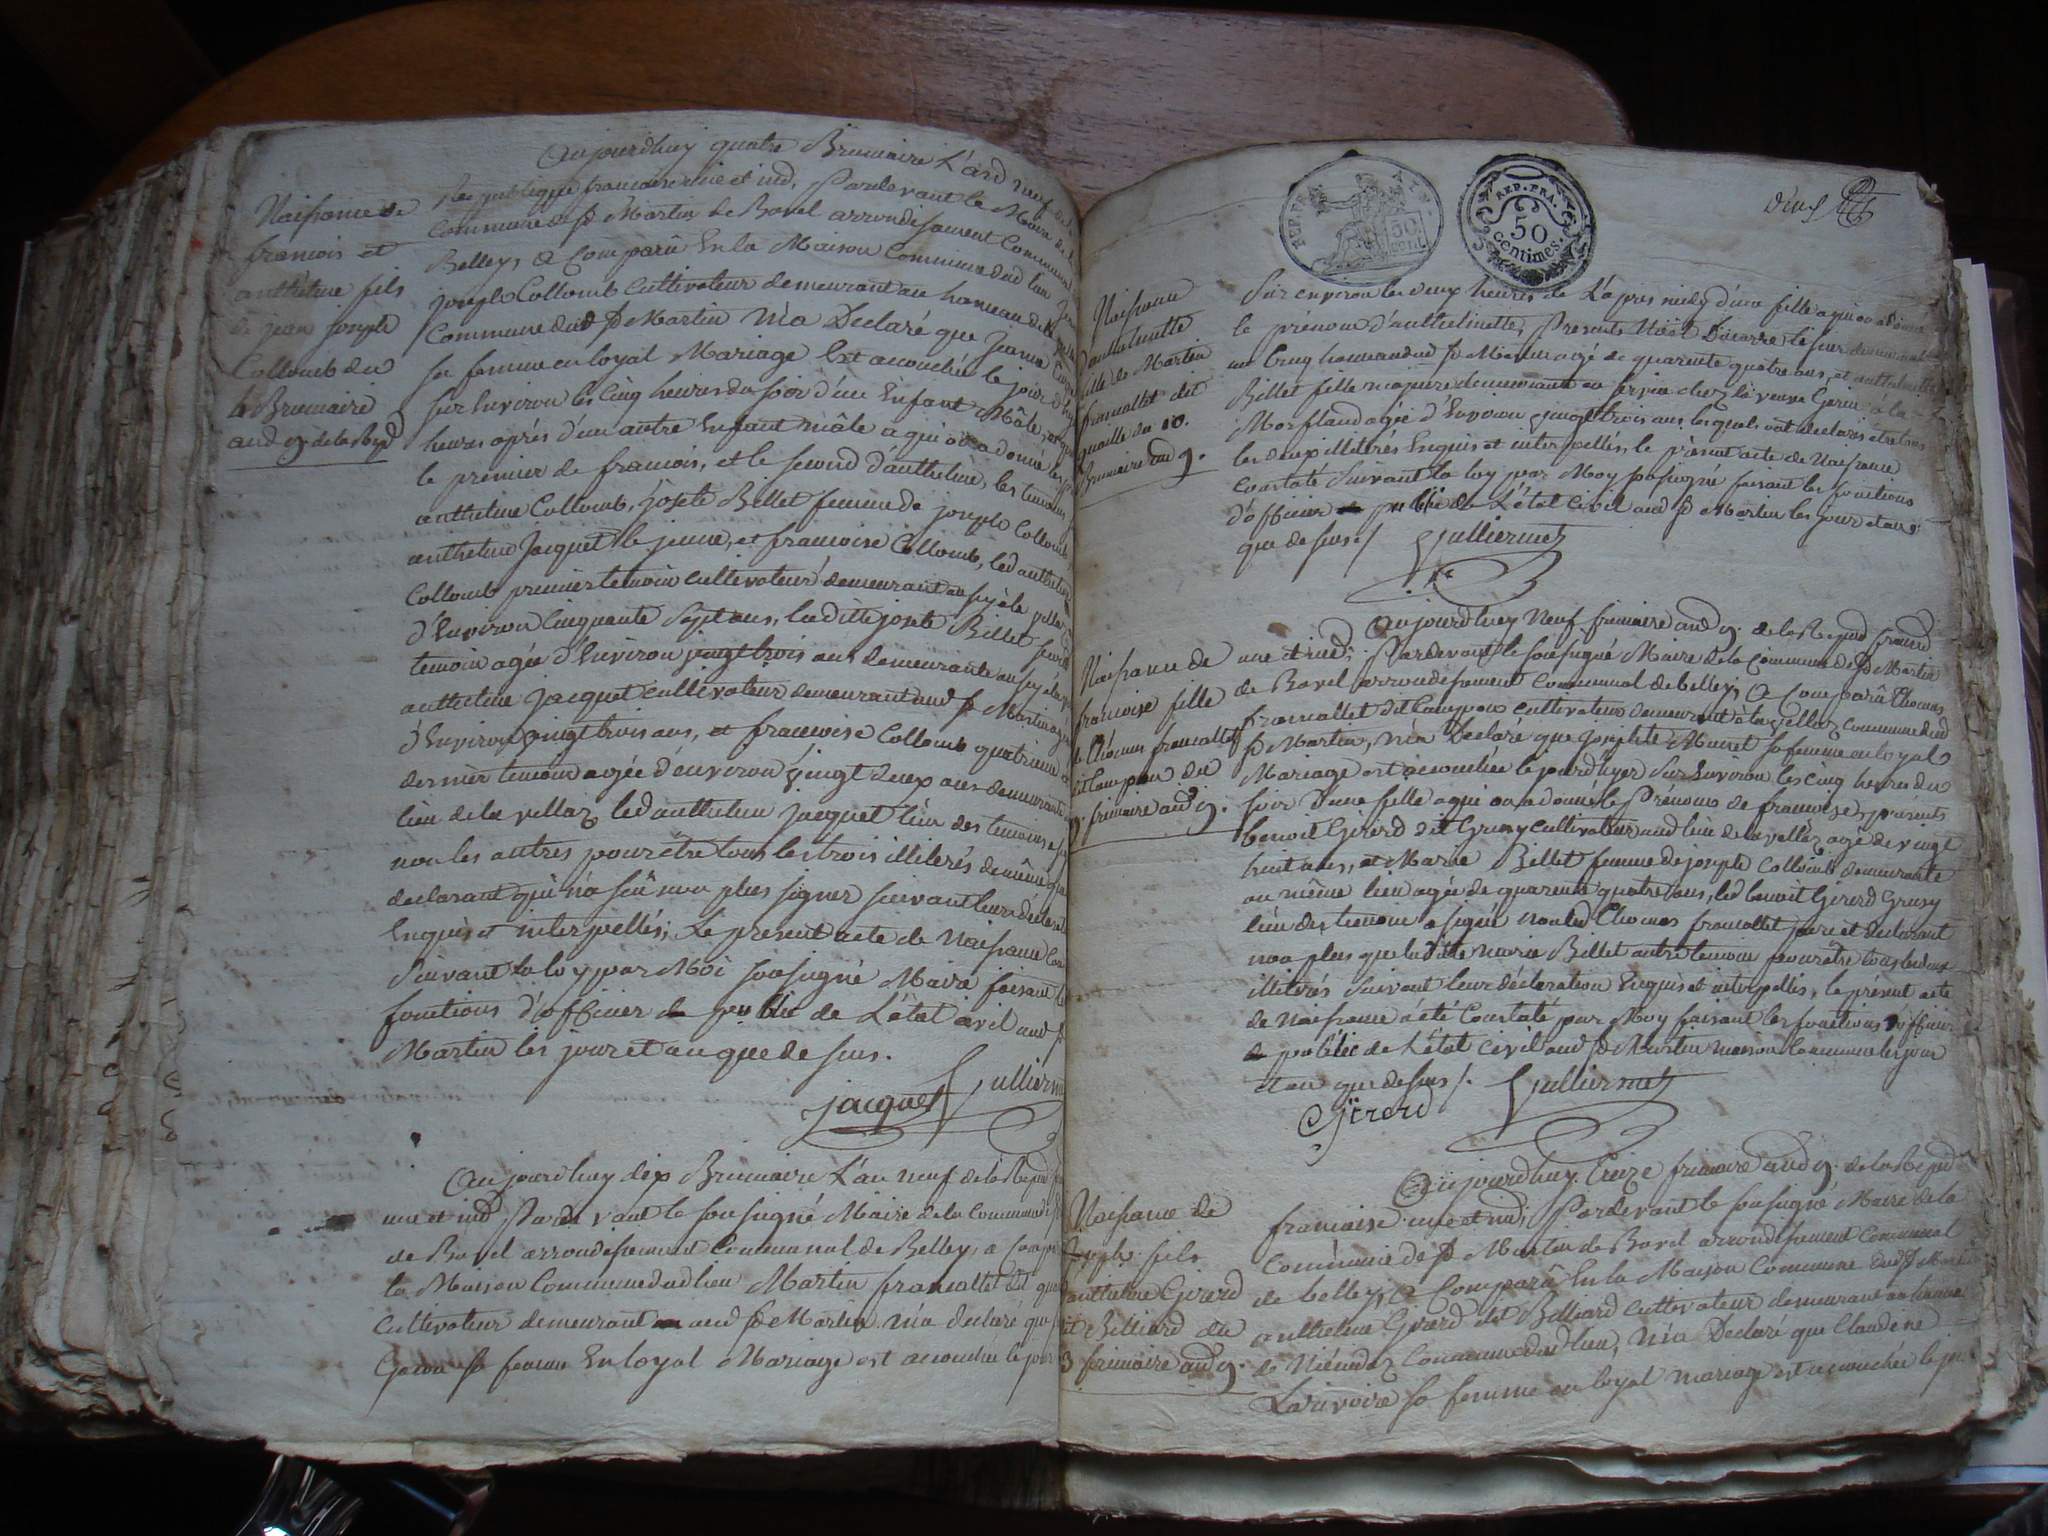 Aujourdhuy quatre Brumaire L'an neuf de la
Republique francaise une et ind, Pardevant le Maire de la
Commune de St Martin de Bavel arrondissement Communal
Belley, a Comparu En la Maison Commune dud lieu
joseph Collomb Cultivateur demeurant au hameau de
Commune dud St Martin M'a Declaré que jeanne
sa femme en loyal Mariage Est accouchée le jour d'hyer
sur Environ les Cinq heures du soir d'un Enfant Mâle, et
heures après d'un autre Enfant mâle a qui on a donné les
le premier de francois, et le second d'anthelme, les temoins
anthelme Collomb, josete Billet femme de joseph Collomb
anthelme Jacquet le jeune, et francoise Collomb, led anthelme
Collomb premier temoin cultivateur demeurant
d'Environ Cinquante Sept ans, la ditte josete Billet
temoin agée d'Environ vingt trois ans demeurante
anthelme jacquet cultivateur demeurant aud St Martin agé
d'Environ vingt trois ans, et francoise Collomb quatrieme et
dernier temoin agée d'environ vingt deux ans demeurante
lieu de la vellaz, led anthelme jacquet l'un des temoins
non les autres pour être tous les trois illiterés de même que
declarant qui n'a scû non plus signer suivant leur declaration
Enquis et interpellés; Le present acte de Naissance
Suivant la loy par Moi soussigné Maire faisant les
fonctions d'officier public de L'état civil aud St
Martin les jour et an que dessus.
jacquet Gulliermet
Naissance de
francois et
anthelme fils
de jean joseph
Collomb du
4 Brumaire
and 9 de la Repd
Aujourdhuy dix Brumaire L'an neuf de la Repud
une et ind Pardevant le soussigné Maire de la Commune
de Bavel arrondissement Communal de Belley, a
la Maison Commune dud lieu Martin francallet dit
Cultivateur demeurant aud St Martin, m'a declaré que
sa femme En loyal Mariage est accouchée le jour
REP. FRA.
50 cent.
REP. FRA.
50
centimes.
Naissance
d'anthelmette
fille de Martin
francallet dit
quaille du 10.
Brumaire and 9.
Sur environ les deux heures de L'après midy d'une fille a qui on a donné
le prénom d'anthelmette, Presents
au hameau dud St Martin agé de quarente quatre ans, et anthelmette
Billet fille majeure demeurante au service chez la veuve à la
agée d'Environ vingt trois ans lesquels ont declaré être tous
les deux illiterés Enquis et interpellés, le présent acte de Naissance
Constaté Suivant la loy par Moy soussigné faisant les fonctions
d'officier public de L'état Civil aud St Martin les jour et an
que dessus./ Gulliermet
Naissance de
francoise fille
de Thomas francallet
dit Campon du
9. frimaire and 9.
Aujourdhuy Neuf frimaire and 9. de la Repud francaise
une et ind; Pardevant le soussigné Maire de la Commune de St Martin
de Bavel arrondissement Communal de belley, a Comparû Thomas
francallet dit Campon cultivateur demeurant à la vellaz commune dud
St Martin, m'a Declaré que josephte Munet sa femme en loyal
Mariage est accouchée le jourdhyer Sur Environ les cinq heures du
soir d'une fille a qui on a donné le Prénom de francoise, présents
benoit Girerd dit Grusy cultivateur aud lieu de la vellaz agé de vingt
huit ans, et Marie Billet femme de joseph Collomb demeurante
au même lieu agée de quarente quatre ans, led benoit Girerd Grusy
l'un des temoins a signé non led Thomas francallet pere et Declarant
non plus que la ditte Marie Billet autre temoin pour être tous les deux
illiterés Suivant leur déclaration Enquis et interpellés, le present acte
de Naissance a été Constaté par Moy faisant les fonctions d'officier
public de L'état Civil aud St Martin maison Commune les jour
et an que dessus /. Gulliermet
Girerd
Naissance de
joseph fils
d'anthelme Girerd
dit Billiard du
13 frimaire and 9.
Aujourdhuy Treize frimaire and 9. de la Repud
francaise une et ind; Pardevant le soussigné Maire de la
Commune de St Martin de Bavel arrondissement Communal
de belley, a Comparû En la Maison Commune dud St Martin
anthelme Girerd dit Billiard cultivateur demeurant au hameau
de Commune dud lieu, m'a Declaré que Claudine
Larivoire sa femme en loyal mariage est accouchée le jour